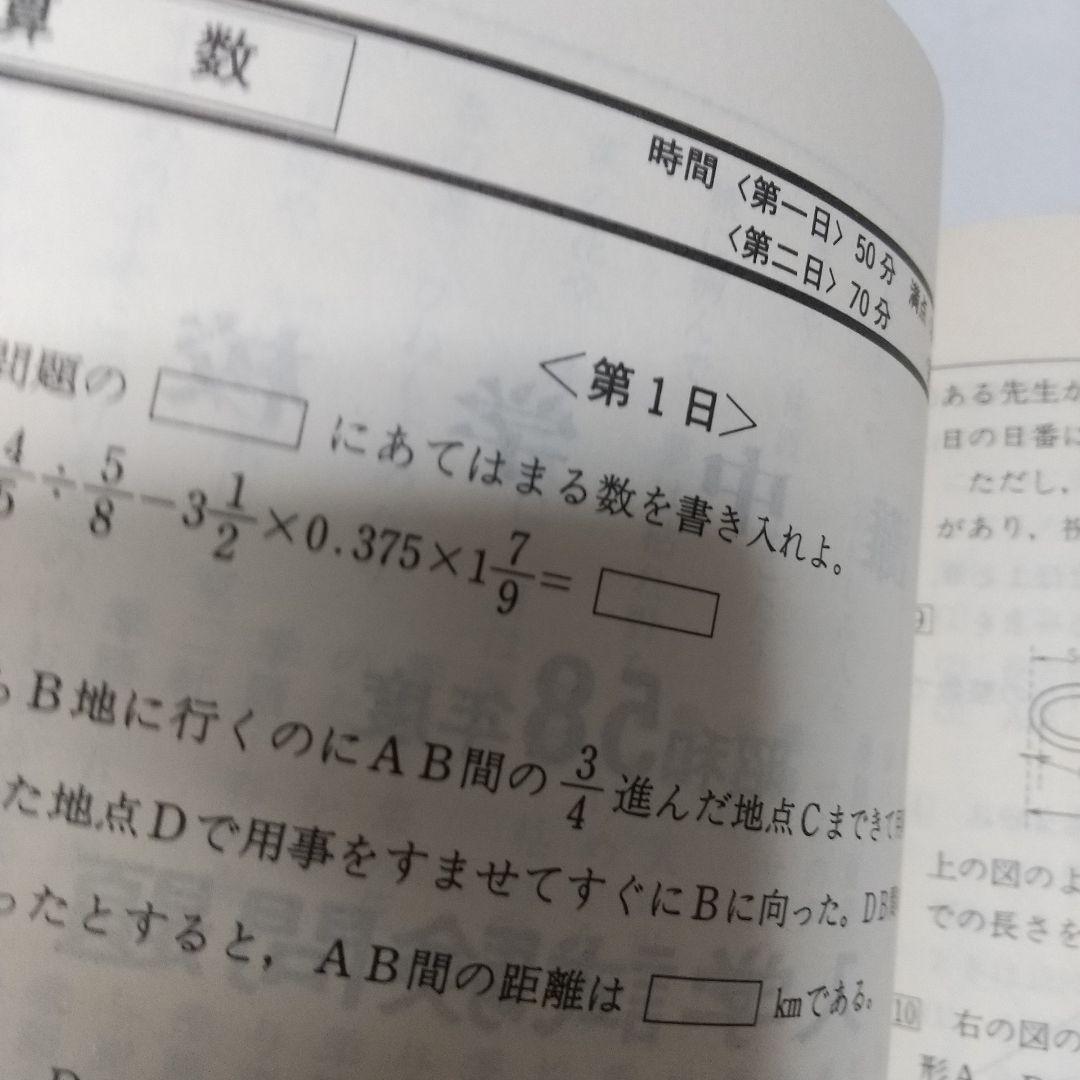 算 数
時間〈第一日〉50分 満点
〈第二日〉70分
<第1日>
問題の□にあてはまる数を書き入れよ。
4/5÷5/8−3 1/2×0.375×1 7/9=□
B地に行くのにAB間の3/4進んだ地点Cまできて
た地点Dで用事をすませてすぐにBに向った。DB間
ったとすると，AB間の距離は□kmである。
ある先生が
目の目番に
ただし，
があり，祝
9
上の図のよ
での長さを
10 右の図の
形A